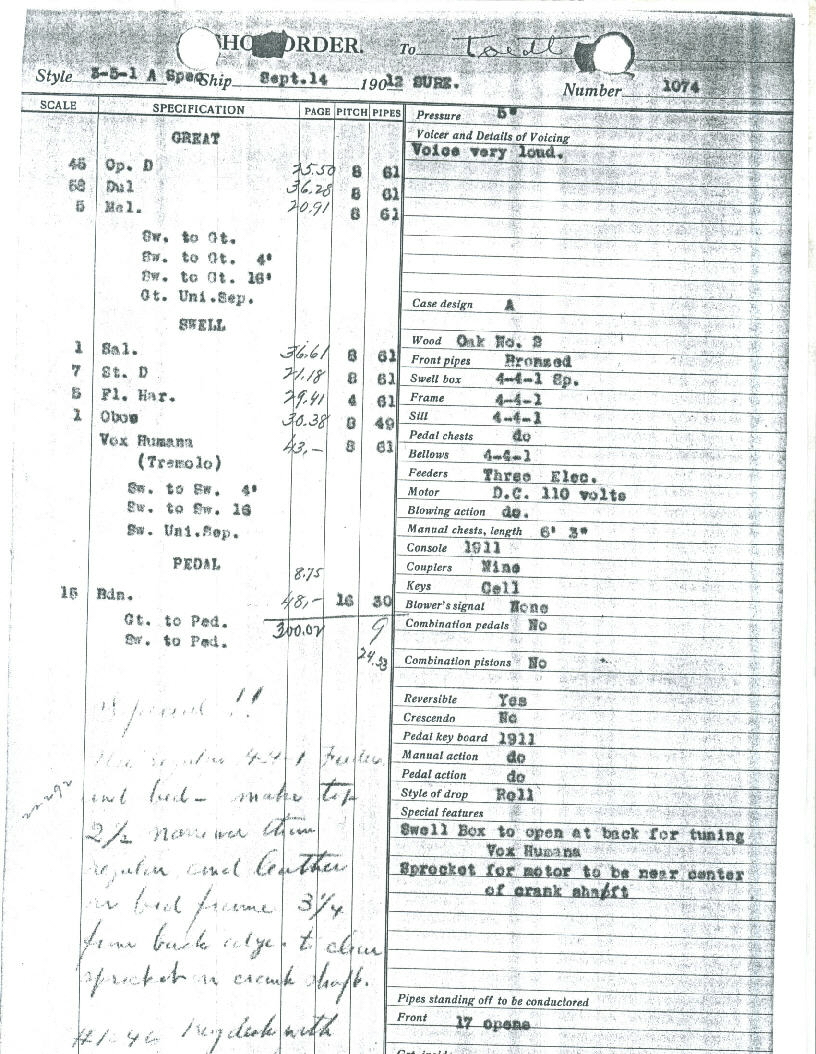 SHOP ORDER. To Toedt
Style 3-5-1 A Spec Ship Sept.14 1912 SURE. Number 1074
SCALE SPECIFICATION PAGE PITCH PIPES
GREAT
45 Op. D 75.50 8 61
58 Dul 36.28 8 61
5 Mel. 20.91 8 61
Sw. to Gt.
Sw. to Gt. 4'
Sw. to Gt. 16'
Gt. Uni.Sep.
SWELL
1 Sal. 36.61 8 61
7 St. D 21.18 8 61
5 Fl. Har. 29.41 4 61
1 Oboe 30.38 8 49
Vox Humana 43,- 8 61
(Tremolo)
Sw. to Sw. 4'
Sw. to Sw. 16
Sw. Uni.Sep.
PEDAL
8.75
15 Bdn. 48,- 16 30
Gt. to Ped. 300.02 9
Sw. to Ped.
24.53
Special !!
Use regular 4-4-1 Feeders
and bed - make top
2 1/2 narrower than
regular and leather
on bed frame 3 1/4
from back edge - to clear
sprocket on crank shaft.
#1046 Keydesk with
Pressure 5"
Voicer and Details of Voicing
Voice very loud.
Case design A
Wood Oak No. 2
Front pipes Bronzed
Swell box 4-4-1 Sp.
Frame 4-4-1
Sill 4-4-1
Pedal chests do
Bellows 4-4-1
Feeders Three Elec.
Motor D.C. 110 volts
Blowing action do.
Manual chests, length 6' 3"
Console 1911
Couplers Nine
Keys Cell
Blower's signal None
Combination pedals No
Combination pistons No
Reversible Yes
Crescendo No
Pedal key board 1911
Manual action do
Pedal action do
Style of drop Roll
Special features
Swell Box to open at back for tuning
Vox Humana
Sprocket for motor to be near center
of crank shaft
Pipes standing off to be conductored
Front 17 opens